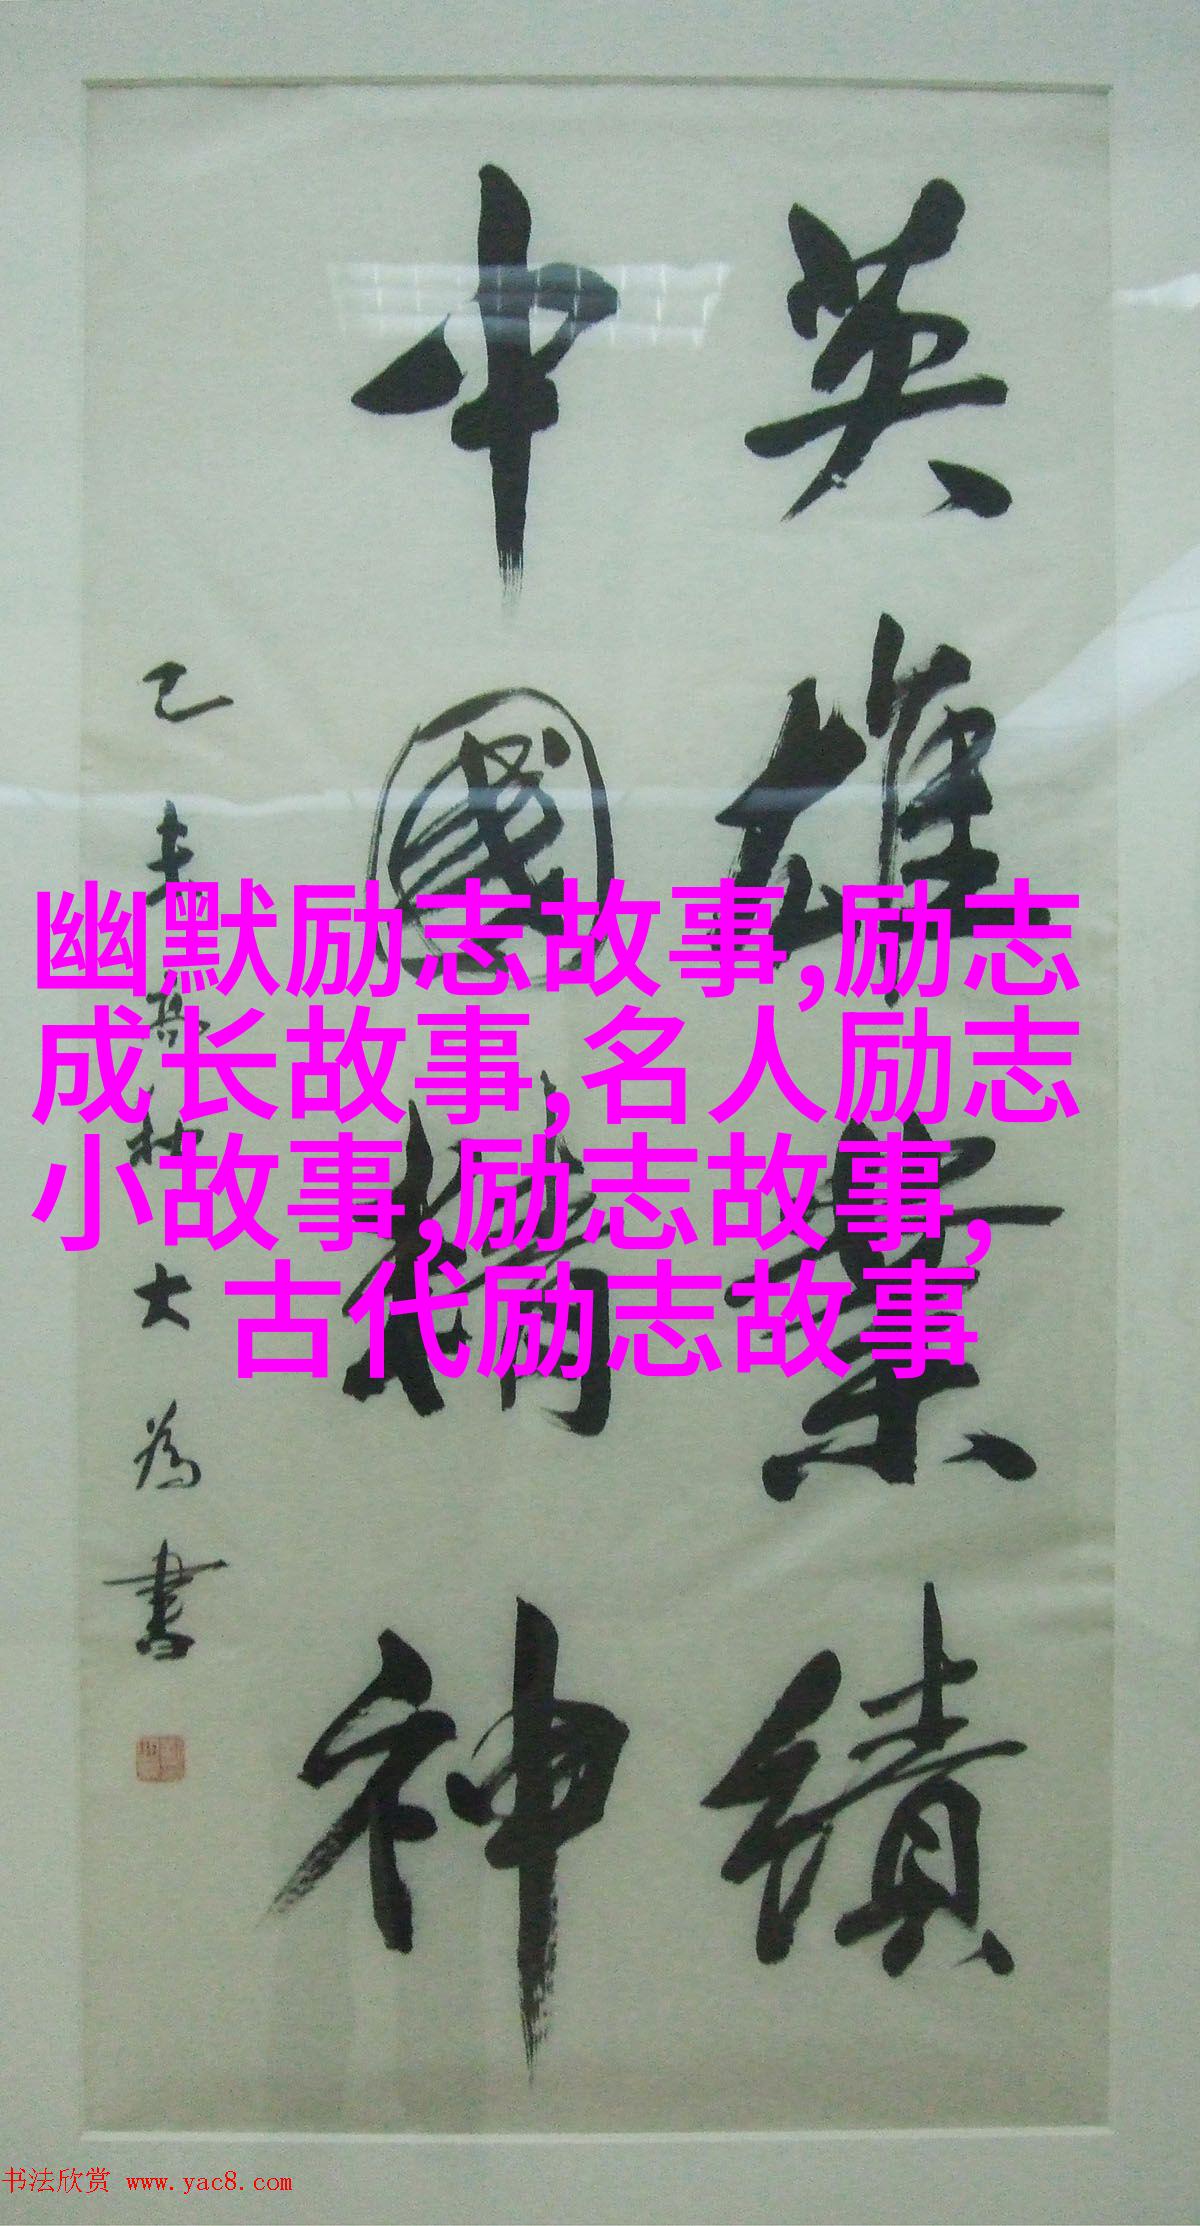 英雄業績
中國精神
己未高秋大為書
幽默励志故事,励志
成长故事,名人励志
小故事,励志故事,
古代励志故事
书法欣赏 www.yac8.com